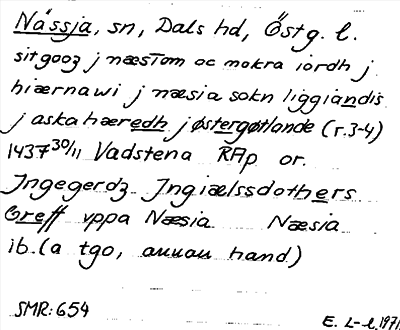 Nässja, sn, Dals hd, Östg. l.
sitgooz j næstom oc mokra iordh j
hiærnawi j næsia sokn liggiandis
j askahæredh j østergøtlande (r.3-4)
1437 30/11 Vadstena RAp or.
Ingegerdz Ingiælssdothers
Breff vppa Næsia Næsia
ib. (a tgo, annan hand)
SMR: 654
E. L-l. 1971